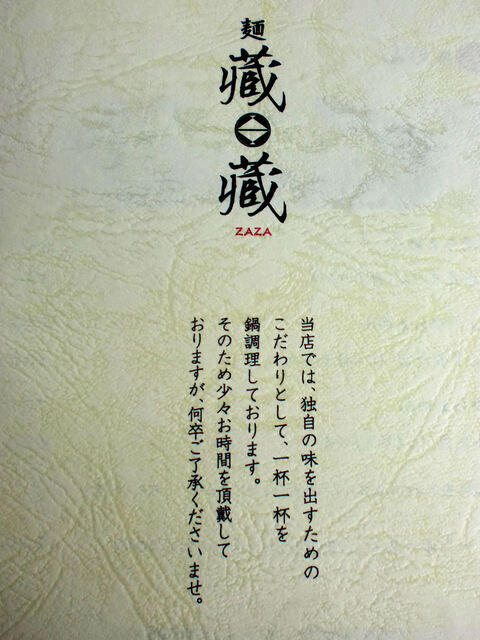 麺
藏
藏
ZAZA
当店では、独自の味を出すための
こだわりとして、一杯一杯を
鍋調理しております。
そのため少々お時間を頂戴して
おりますが、何卒ご了承くださいませ。